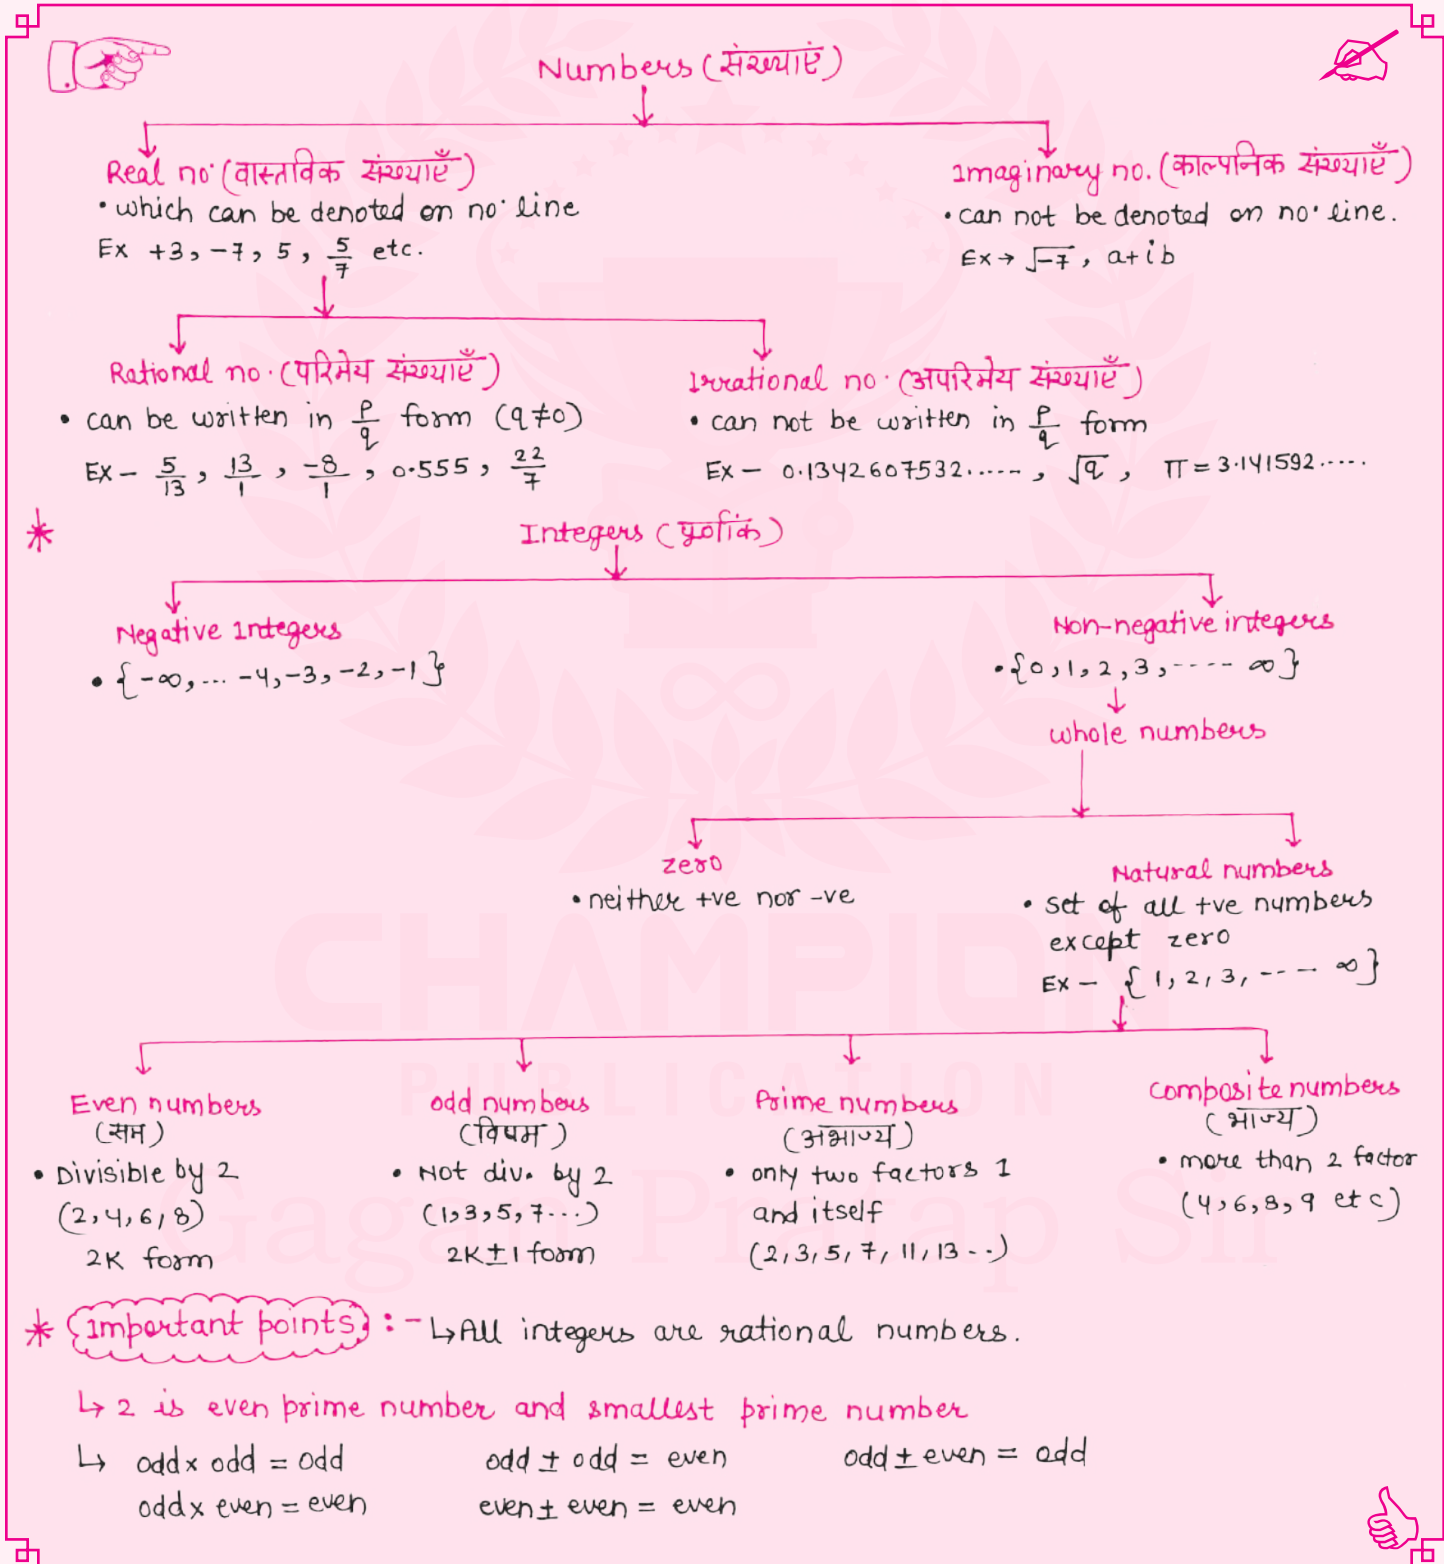 Numbers (संख्याएं)
Real no. (वास्तविक संख्याएँ)
• which can be denoted on no. line
Ex +3, -7, 5, 5/7 etc.
Imaginary no. (काल्पनिक संख्याएँ)
• can not be denoted on no. line.
Ex → √-7, a+ib
Rational no. (परिमेय संख्याएँ)
• can be written in p/q form (q≠0)
Ex - 5/13, 13/1, -8/1, 0.555, 22/7
Irrational no. (अपरिमेय संख्याएँ)
• can not be written in p/q form
Ex - 0.1342607532......, √q, π = 3.141592.....
* Integers (पूर्णांक)
Negative Integers
• {-∞, ... -4, -3, -2, -1}
Non-negative integers
• {0, 1, 2, 3, ----- ∞}
whole numbers
zero
• neither +ve nor -ve
Natural numbers
• set of all +ve numbers
except zero
Ex - {1, 2, 3, ---- ∞}
Even numbers
(सम)
• Divisible by 2
(2, 4, 6, 8)
2K form
odd numbers
(विषम)
• Not div. by 2
(1, 3, 5, 7...)
2K±1 form
Prime numbers
(अभाज्य)
• only two factors 1
and itself
(2, 3, 5, 7, 11, 13 - -)
Composite numbers
(भाज्य)
• more than 2 factor
(4, 6, 8, 9 etc)
* Important points :- ↳ All integers are rational numbers.
↳ 2 is even prime number and smallest prime number
↳ odd x odd = odd odd ± odd = even odd ± even = odd
odd x even = even even ± even = even
CHAMPION
PUBLICATION
Gagan Pratap Sir